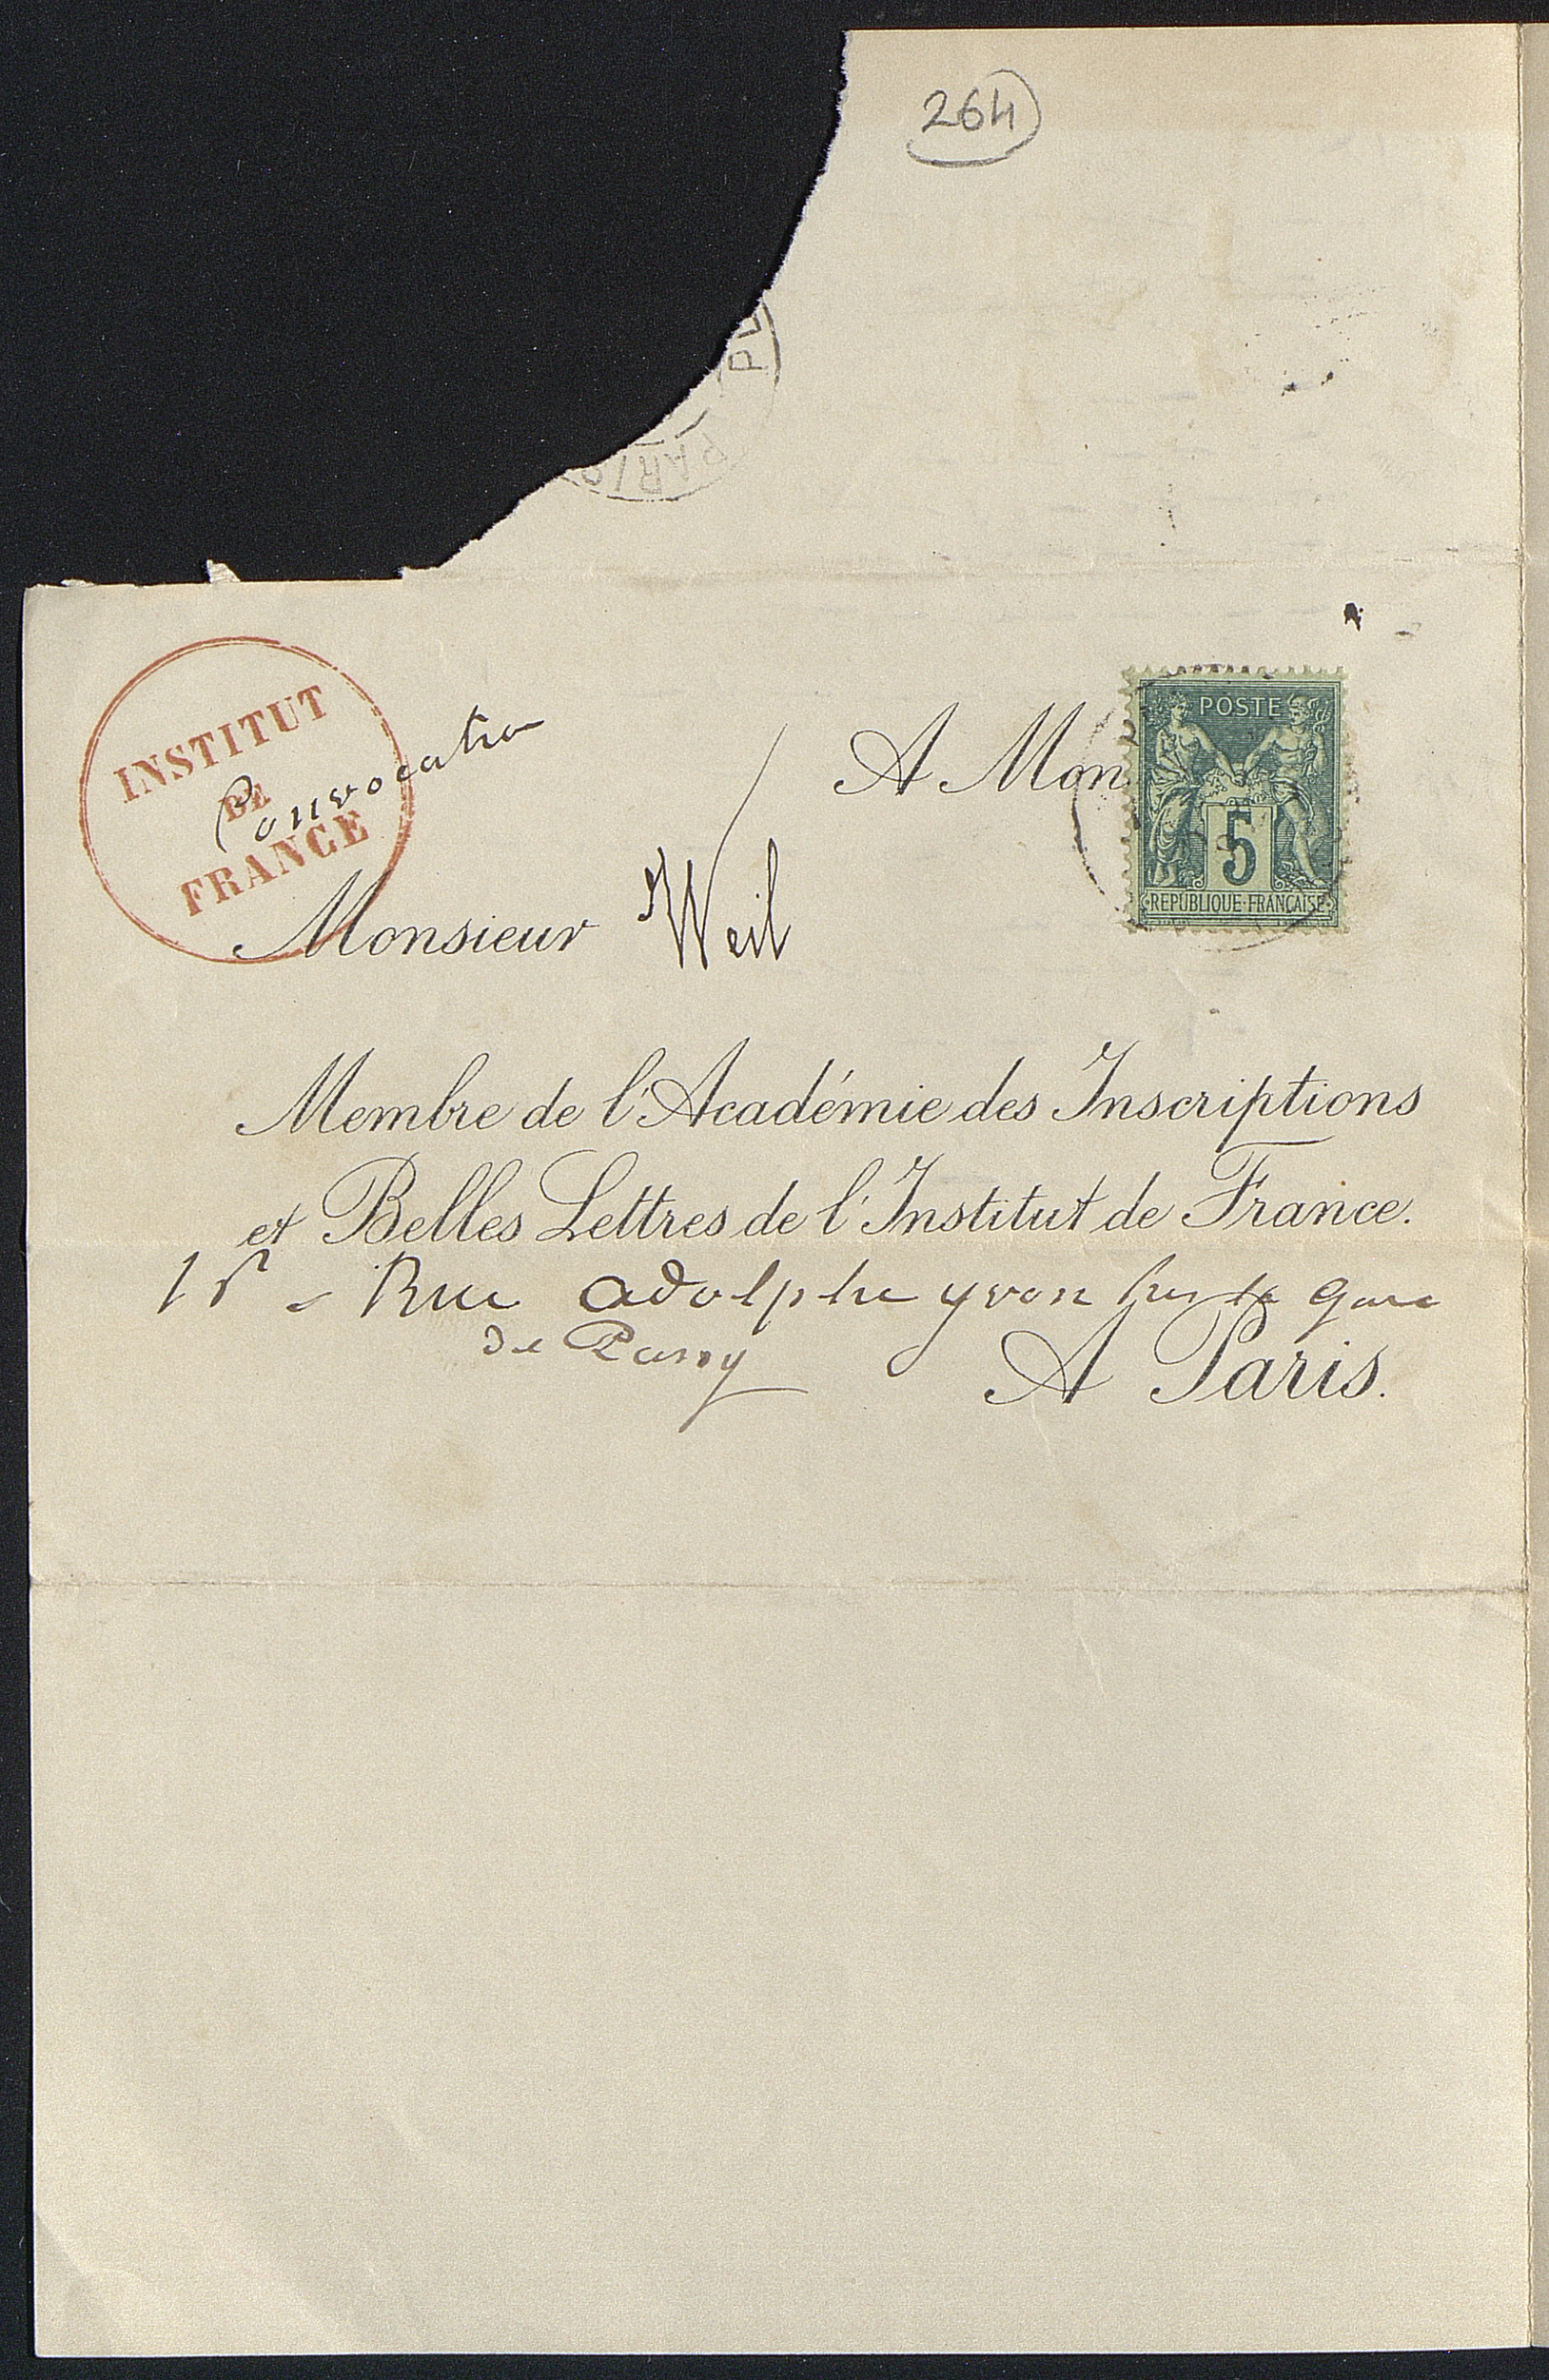 264
PL
PARIS
INSTITUT
DE
FRANCE
Convocation
A Mon
POSTE
5
REPUBLIQUE FRANÇAISE
Monsieur Weil
Membre de l'Académie des Inscriptions
et Belles Lettres de l'Institut de France.
Rue adolphe yvon la gare
de Passy
A Paris.